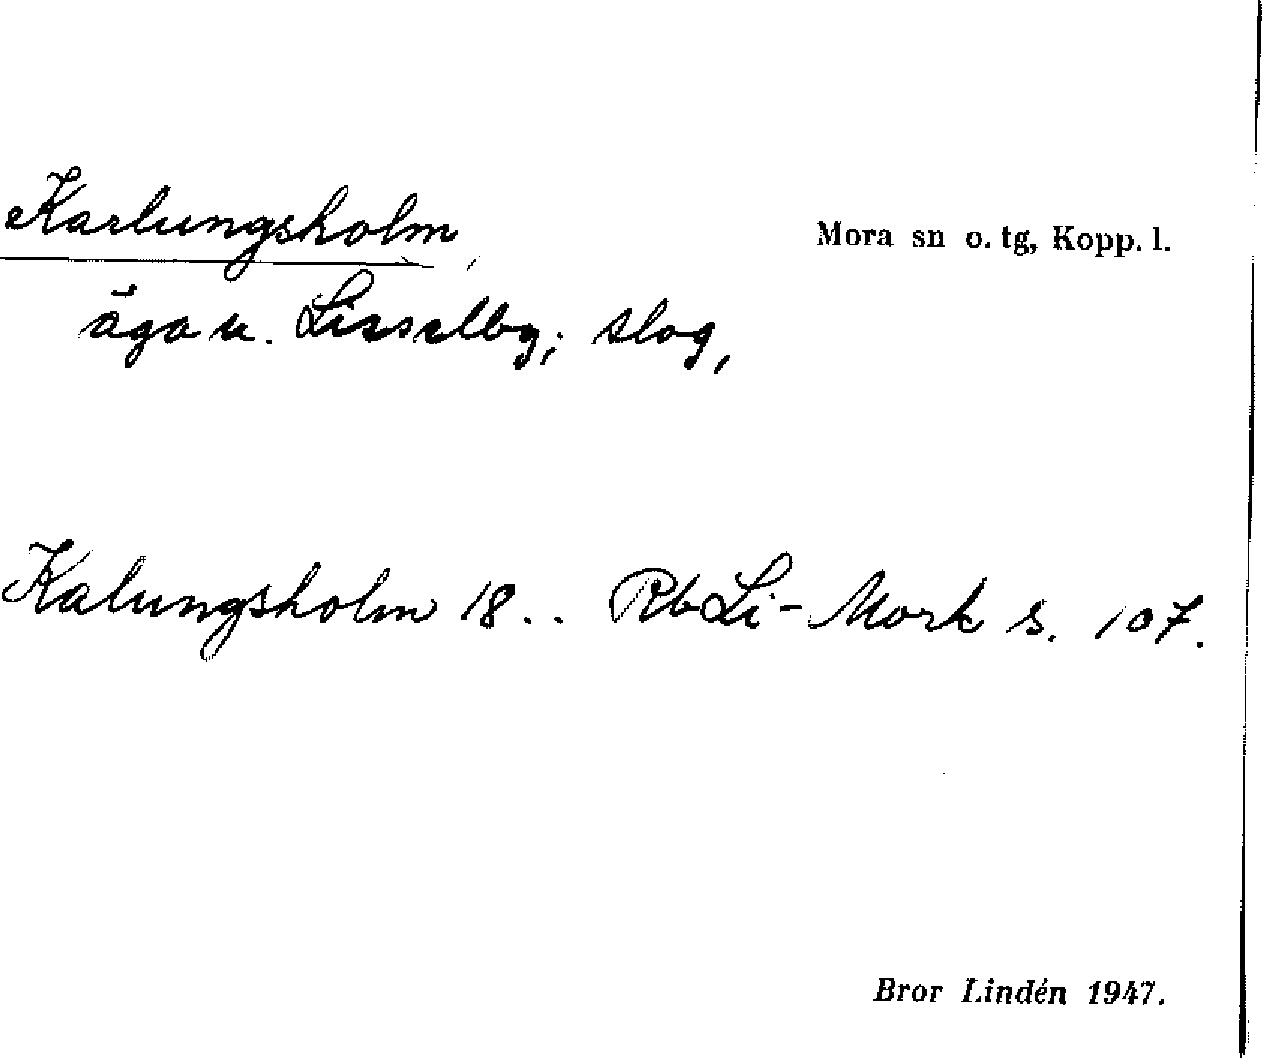 Karlungsholm,
Mora sn o. tg, Kopp. l.
äga u. Lisselby; slog,
Kalungsholm 18.. Rb Li-Mork s. 107.
Bror Lindén 1947.